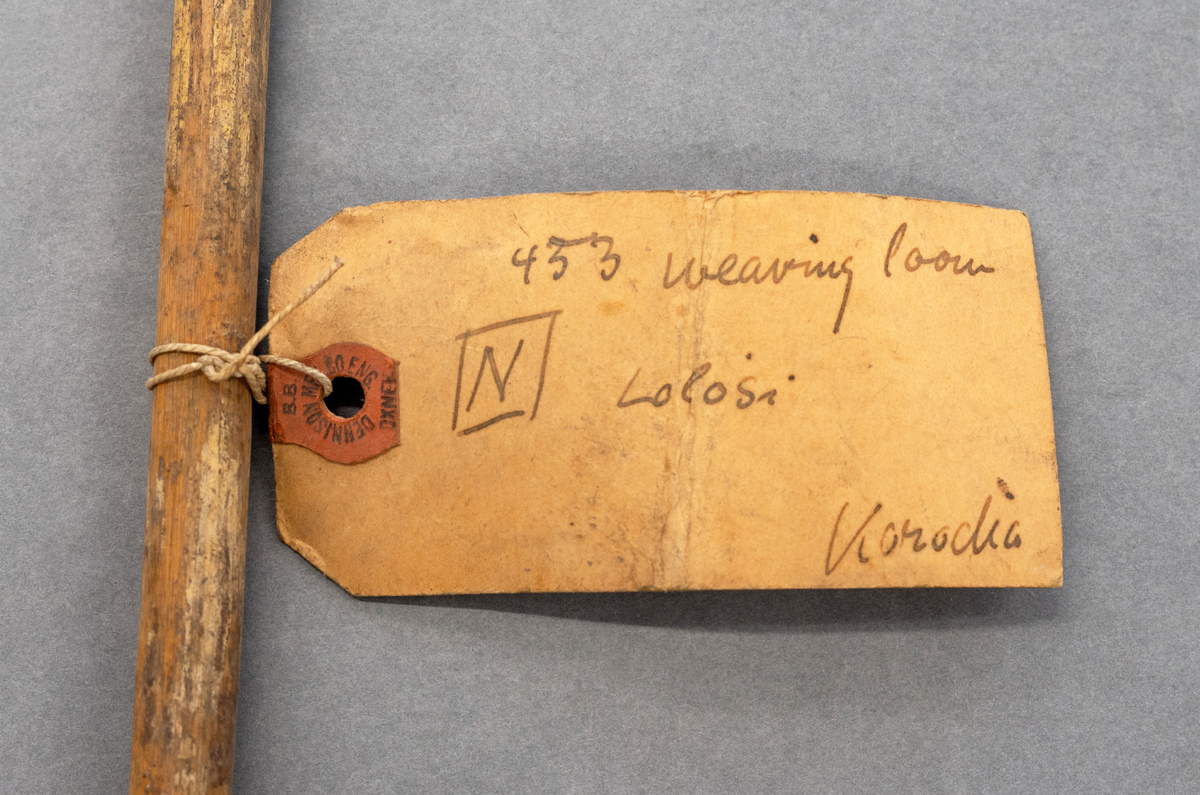 453 weaving loom
N
Lolosi
Korodia
B.B.
DENNISON MFG. CO ENG.